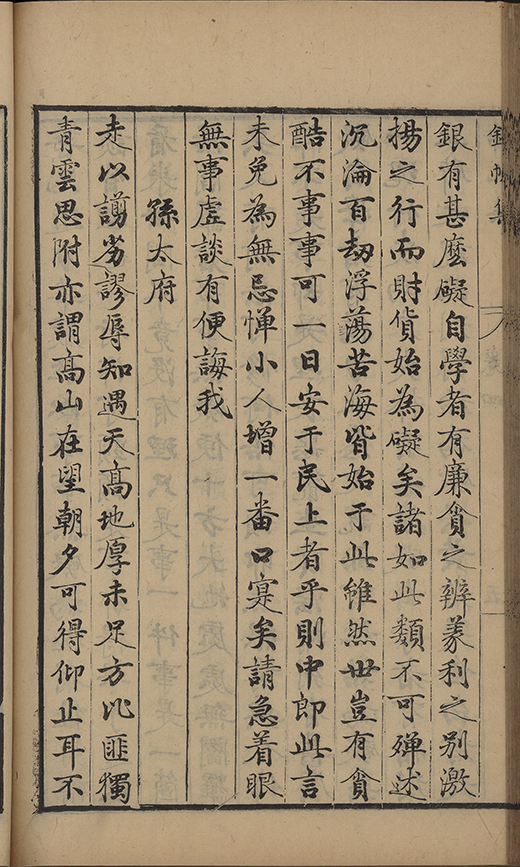 錦帆集
銀有甚麽礙自學者有廉貪之辨義利之别激
揚之行而財貨始為礙矣諸如此類不可殫述
沉淪百劫浮蕩苦海皆始于此雖然世豈有貪
酷不事事可一日安于民上者乎則中即此言
未免為無忌憚小人增一番口寔矣請急着眼
無事虛談有便誨我
孫太府
走以謭劣謬辱知遇天高地厚未足方比匪獨
青雲思附亦謂高山在望朝夕可得仰止耳不